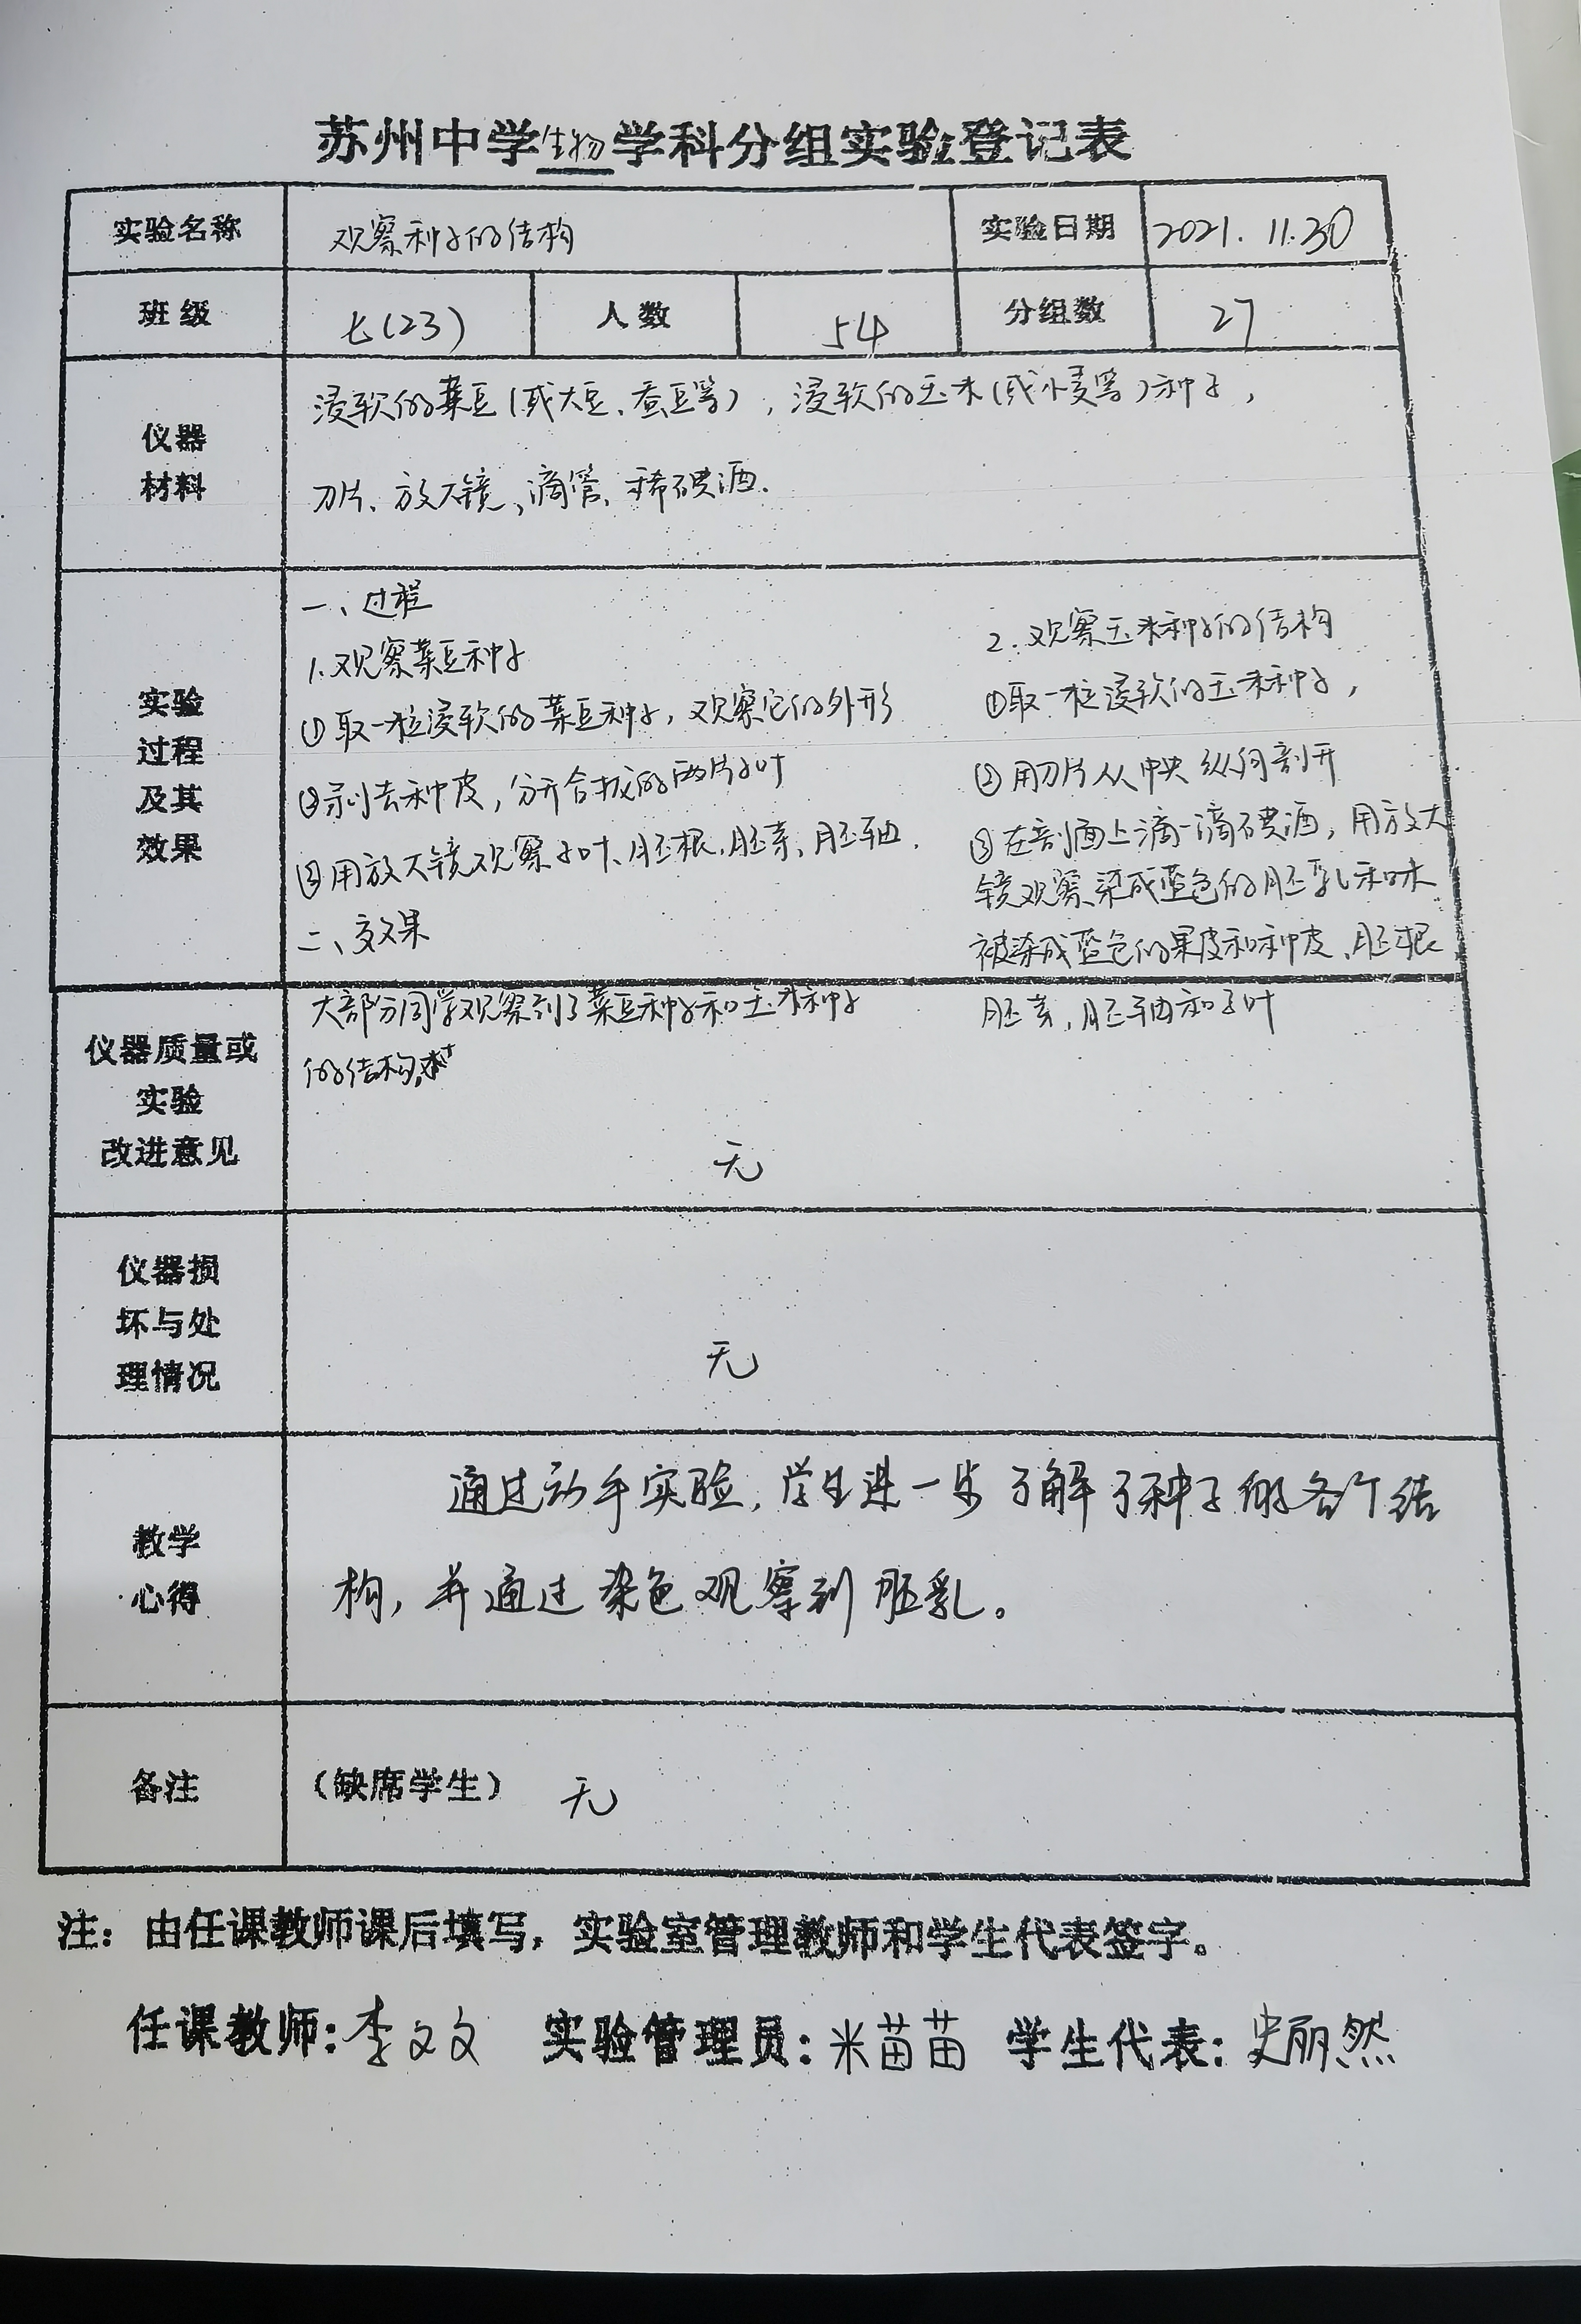 苏州中学生物学科分组实验登记表
实验名称 观察种子的结构 实验日期 2021.11.30
班级 七(23) 人数 54 分组数 27
仪器
材料
浸软的菜豆(或大豆、蚕豆等),浸软的玉米(或小麦等)种子,
刀片、放大镜、滴管、稀碘酒.
实验
过程
及其
效果
一、过程
1.观察菜豆种子
①取一粒浸软的菜豆种子,观察它的外形
②剥去种皮,分开合拢的两片子叶
③用放大镜观察子叶、胚根、胚芽、胚轴.
二、效果
大部分同学观察到了菜豆种子和玉米种子
的结构.
2.观察玉米种子的结构
①取一粒浸软的玉米种子,
②用刀片从中央纵向剖开
③在剖面上滴一滴碘酒,用放大
镜观察染成蓝色的胚乳和未
被染成蓝色的果皮和种皮、胚根
胚芽,胚轴和子叶
仪器质量或
实验
改进意见
无
仪器损
坏与处
理情况
无
教学
心得
通过动手实验,学生进一步了解了种子的各个结
构,并通过染色观察到胚乳。
备注 (缺席学生) 无
注:由任课教师课后填写,实验室管理教师和学生代表签字。
任课教师:李文文 实验管理员:米苗苗 学生代表:史丽然